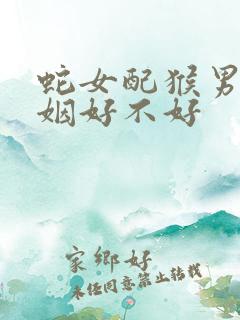 蛇女配猴男
姻好不好
家鄉好
未经同意禁止转载